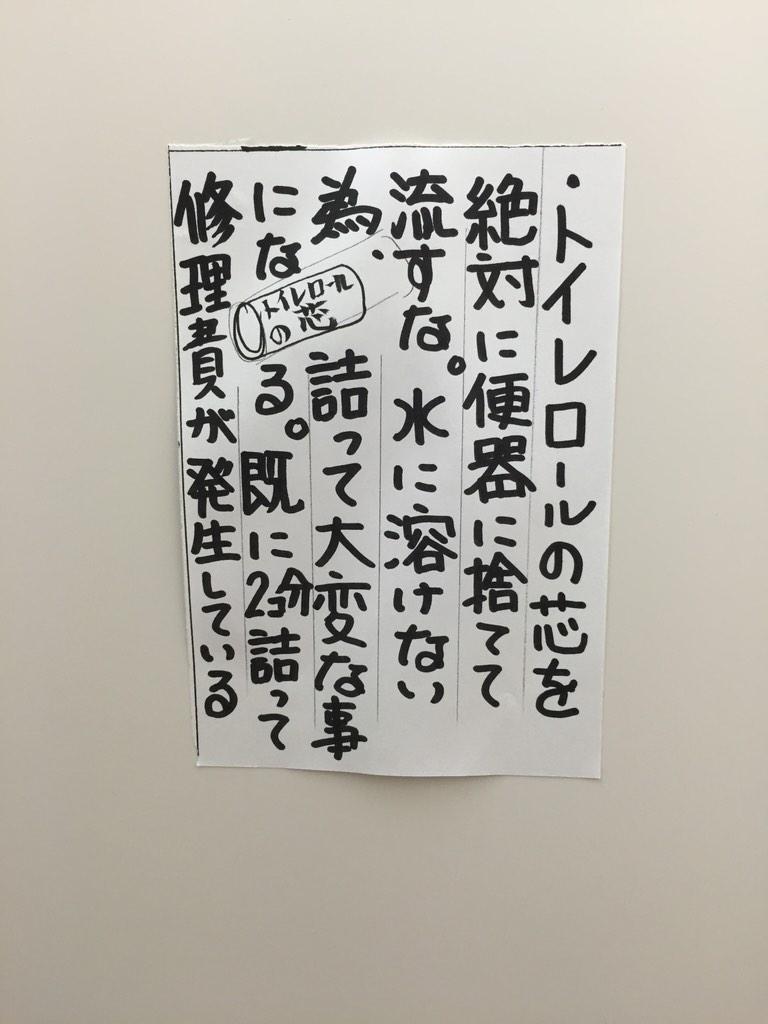 ・トイレロールの芯を
絶対に便器に捨てて
流すな。水に溶けない
為、詰って大変な事
になる。既に2コ分詰って
修理費が発生している
トイレロール
の芯